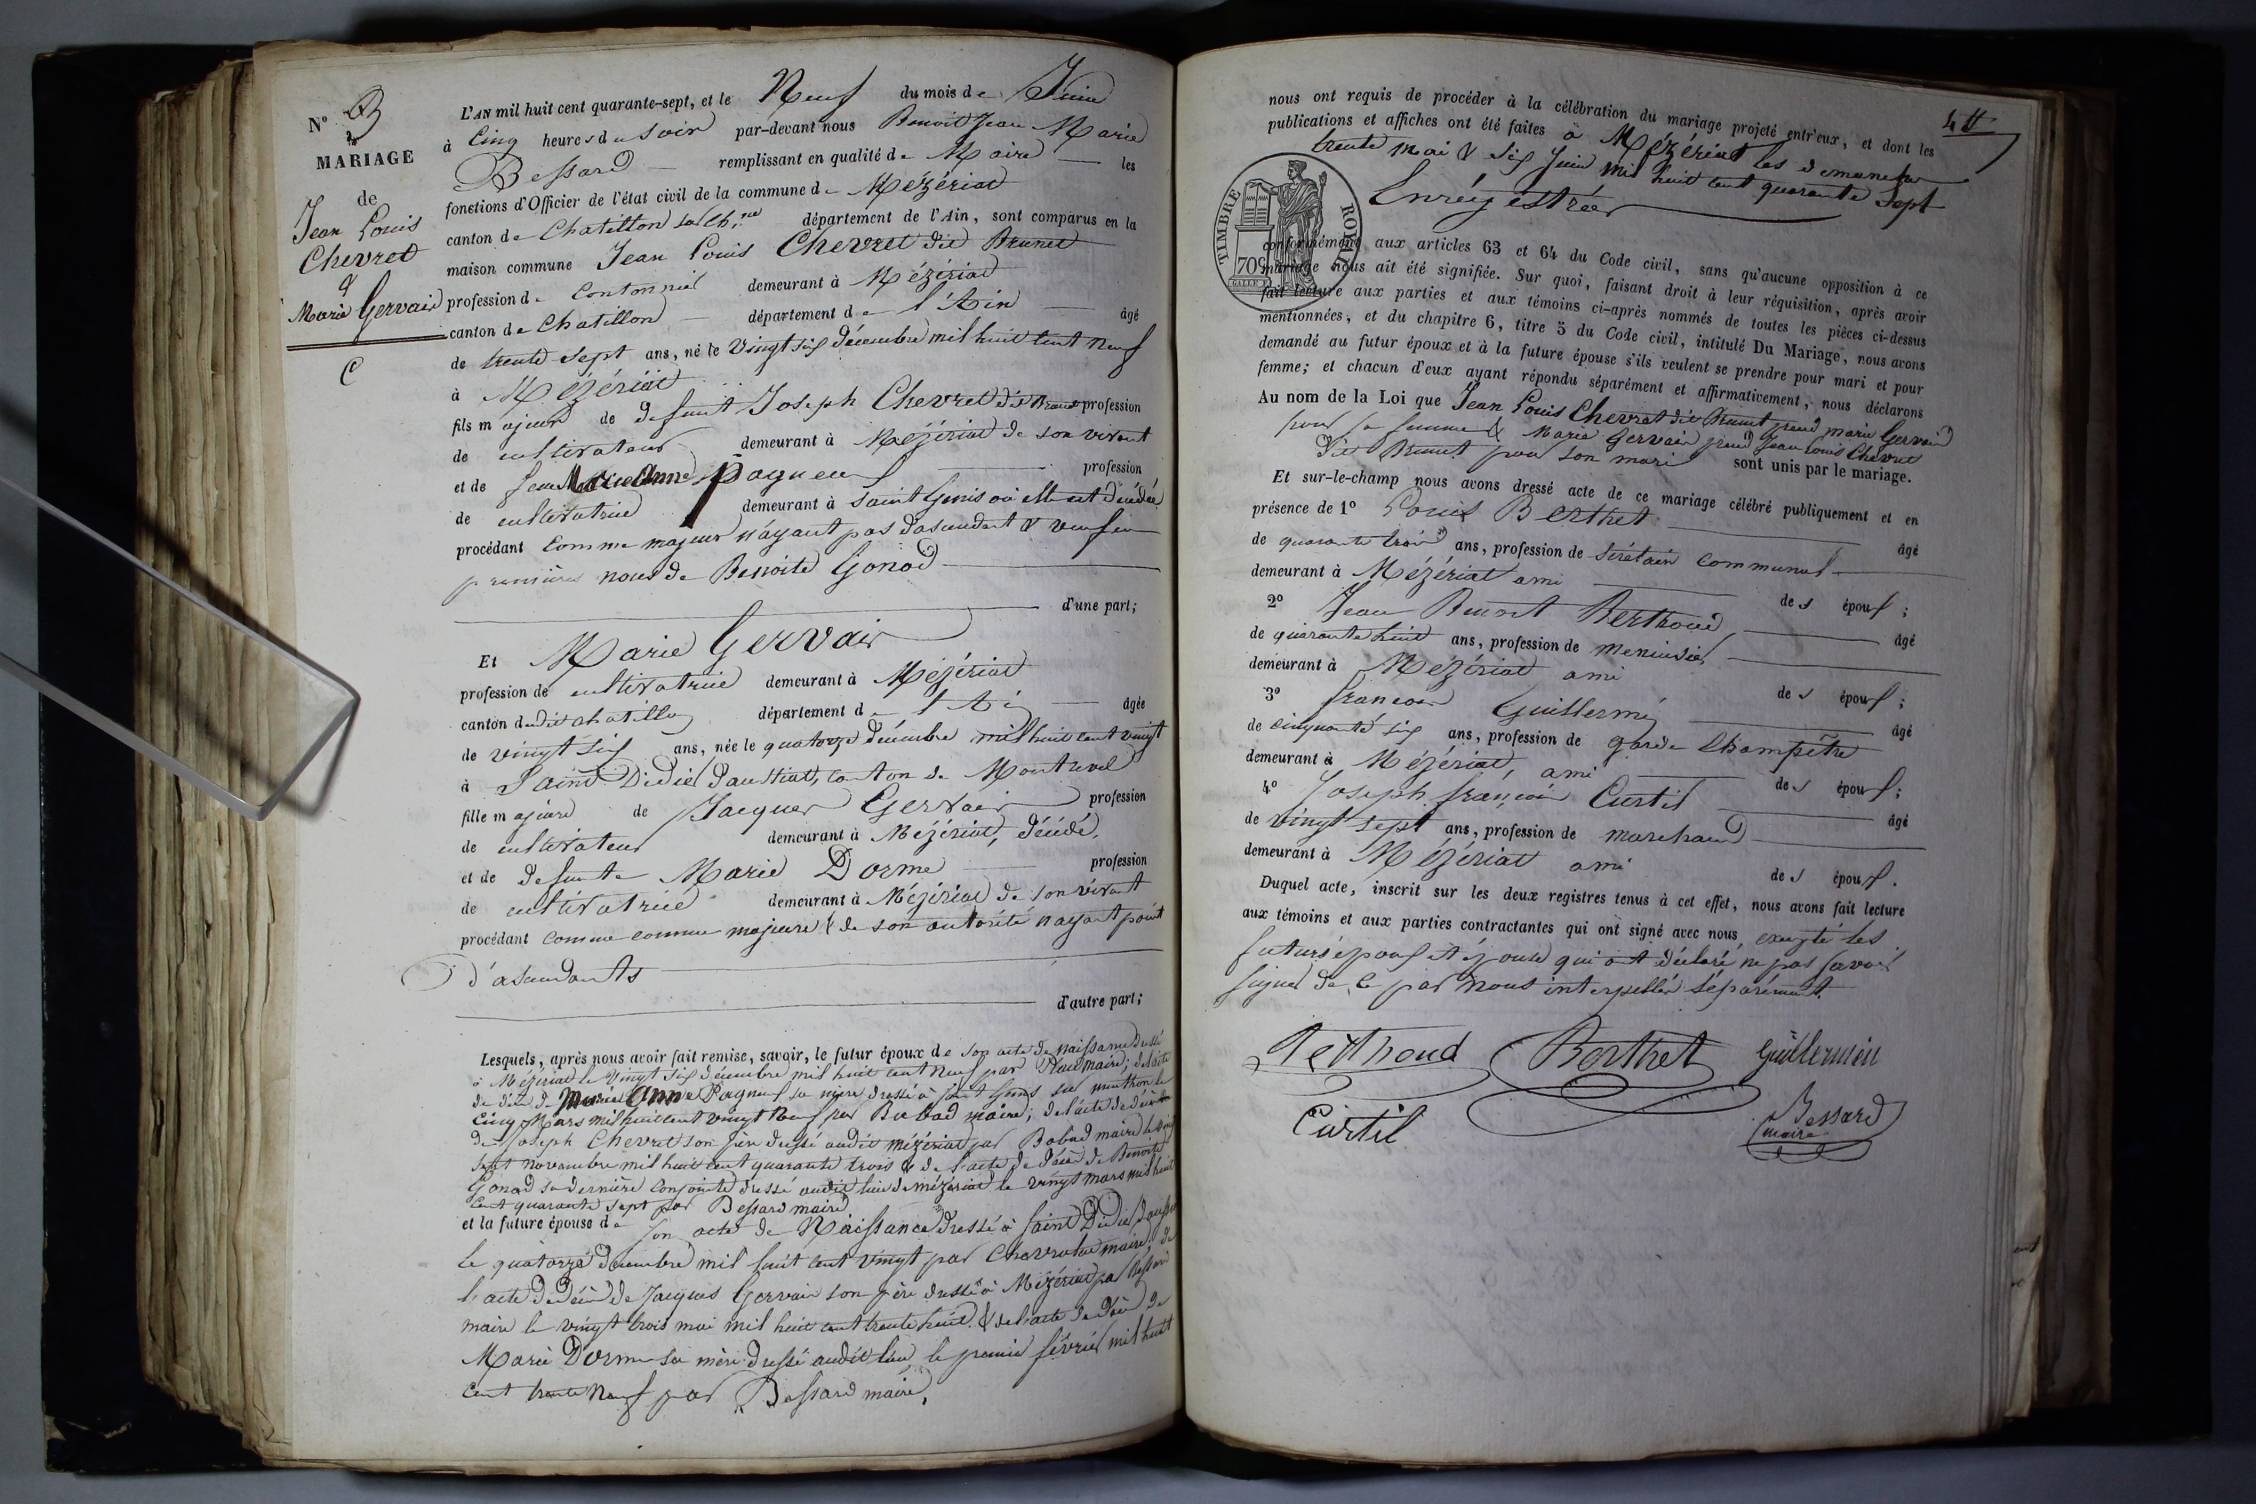 N° 
MARIAGE
de
Jean Louis
Chevret
&
Marie Gervais
C
L'AN mil huit cent quarante-sept, et le Neuf du mois de Juin
à Cinq heures du soir par-devant nous Benoit Jean Marie
Bessard remplissant en qualité de Maire les
fonctions d'Officier de l'état civil de la commune de Mézériat
canton de Chatillon département de l'Ain, sont comparus en la
maison commune Jean Louis Chevret dit Brunet
profession de demeurant à Mézériat
canton de Chatillon département de l'Ain âgé
de trente sept ans, né le Vingt six décembre mil huit cent neuf
à Mézériat
fils majeur de defunt Joseph Chevret dit Brunet profession
de cultivateur demeurant à Mézériat de son vivant
et de feue Marie Anne Pagneux profession
de cultivatrice demeurant à Saint Genis où elle est décédée
procédant comme majeur n'ayant pas d'ascendant & veuf en
premières noces de Benoite Gonod
d'une part;
Et Marie Gervais
profession de cultivatrice demeurant à Mézériat
canton dudit chatillon département de l'Ain âgée
de vingt six ans, née le quatorze décembre mil huit cent vingt
à Saint Didier d'aussiat, canton de Montrevel
fille majeure de Jacques Gervais profession
de cultivateur demeurant à Mézériat, décédé,
et de defunte Marie Dorme profession
de cultivatrice demeurant à Mézériat de son vivant
procédant comme comme majeure & de son autorité n'ayant point
d'ascendants
d'autre part;
Lesquels, après nous avoir fait remise, savoir, le futur époux de son acte de naissance dressé
à Mézériat le vingt six décembre mil huit cent neuf par maire; de l'acte
de décès de Marie Anne Pagneux sa mère dressé à Saint Genis sur menthon le
cinq Mars mil huit cent vingt neuf par Babad maire; de l'acte de décès
de Joseph Chevret son père dressé audit mézériat par Babad maire le
sept novembre mil huit cent quarante trois & de l'acte de décès de Benoite
Gonod sa dernière conjointe dressé audit lieu de mézériat le vingt mars mil huit
cent quarante sept par Bessard maire
et la future épouse de son acte de Naissance dressé à Saint Didier d'aussiat
le quatorze décembre mil huit cent vingt par maire; de
l'acte de décès de Jacques Gervais son père dressé à Mézériat par Bessard
maire le vingt trois mai mil huit cent trente huit & de l'acte de décès de
Marie Dorme sa mère dressé audit lieu le premier février mil huit
cent trente neuf par Bessard maire,
nous ont requis de procéder à la célébration du mariage projeté entr'eux, et dont les
publications et affiches ont été faites à Mézériat les dimanches
trente mai & six Juin mil huit cent quarante sept
Enrégistrées
TIMBRE ROYAL
conformément aux articles 63 et 64 du Code civil, sans qu'aucune opposition à ce
mariage nous ait été signifiée. Sur quoi, faisant droit à leur réquisition, après avoir
fait lecture aux parties et aux témoins ci-après nommés de toutes les pièces ci-dessus
mentionnées, et du chapitre 6, titre 5 du Code civil, intitulé Du Mariage, nous avons
demandé au futur époux et à la future épouse s'ils veulent se prendre pour mari et pour
femme; et chacun d'eux ayant répondu séparément et affirmativement, nous déclarons
Au nom de la Loi que Jean Louis Chevret dit Brunet prend marie Gervais
pour sa femme & Marie Gervais prend Jean Louis Chevret
dit Brunet pour son mari sont unis par le mariage.
Et sur-le-champ nous avons dressé acte de ce mariage célébré publiquement et en
présence de 1° Louis Berthet âgé
de quarante trois ans, profession de secrétaire communal
demeurant à Mézériat ami des époux;
2° Jean Benoit Berthoud âgé
de quarante huit ans, profession de menuisier
demeurant à Mézériat ami des époux;
3° françois Guillermin âgé
de cinquante six ans, profession de garde champêtre
demeurant à Mézériat, ami des époux;
4° Joseph françois Curtil âgé
de vingt sept ans, profession de marchand
demeurant à Mézériat ami des époux.
Duquel acte, inscrit sur les deux registres tenus à cet effet, nous avons fait lecture
aux témoins et aux parties contractantes qui ont signé avec nous, excepté les
futurs époux et épouse qui ont déclaré ne pas savoir
signer de ce par nous interpellés séparément.
Berthoud Berthet Guillermin
Curtil Bessard
maire